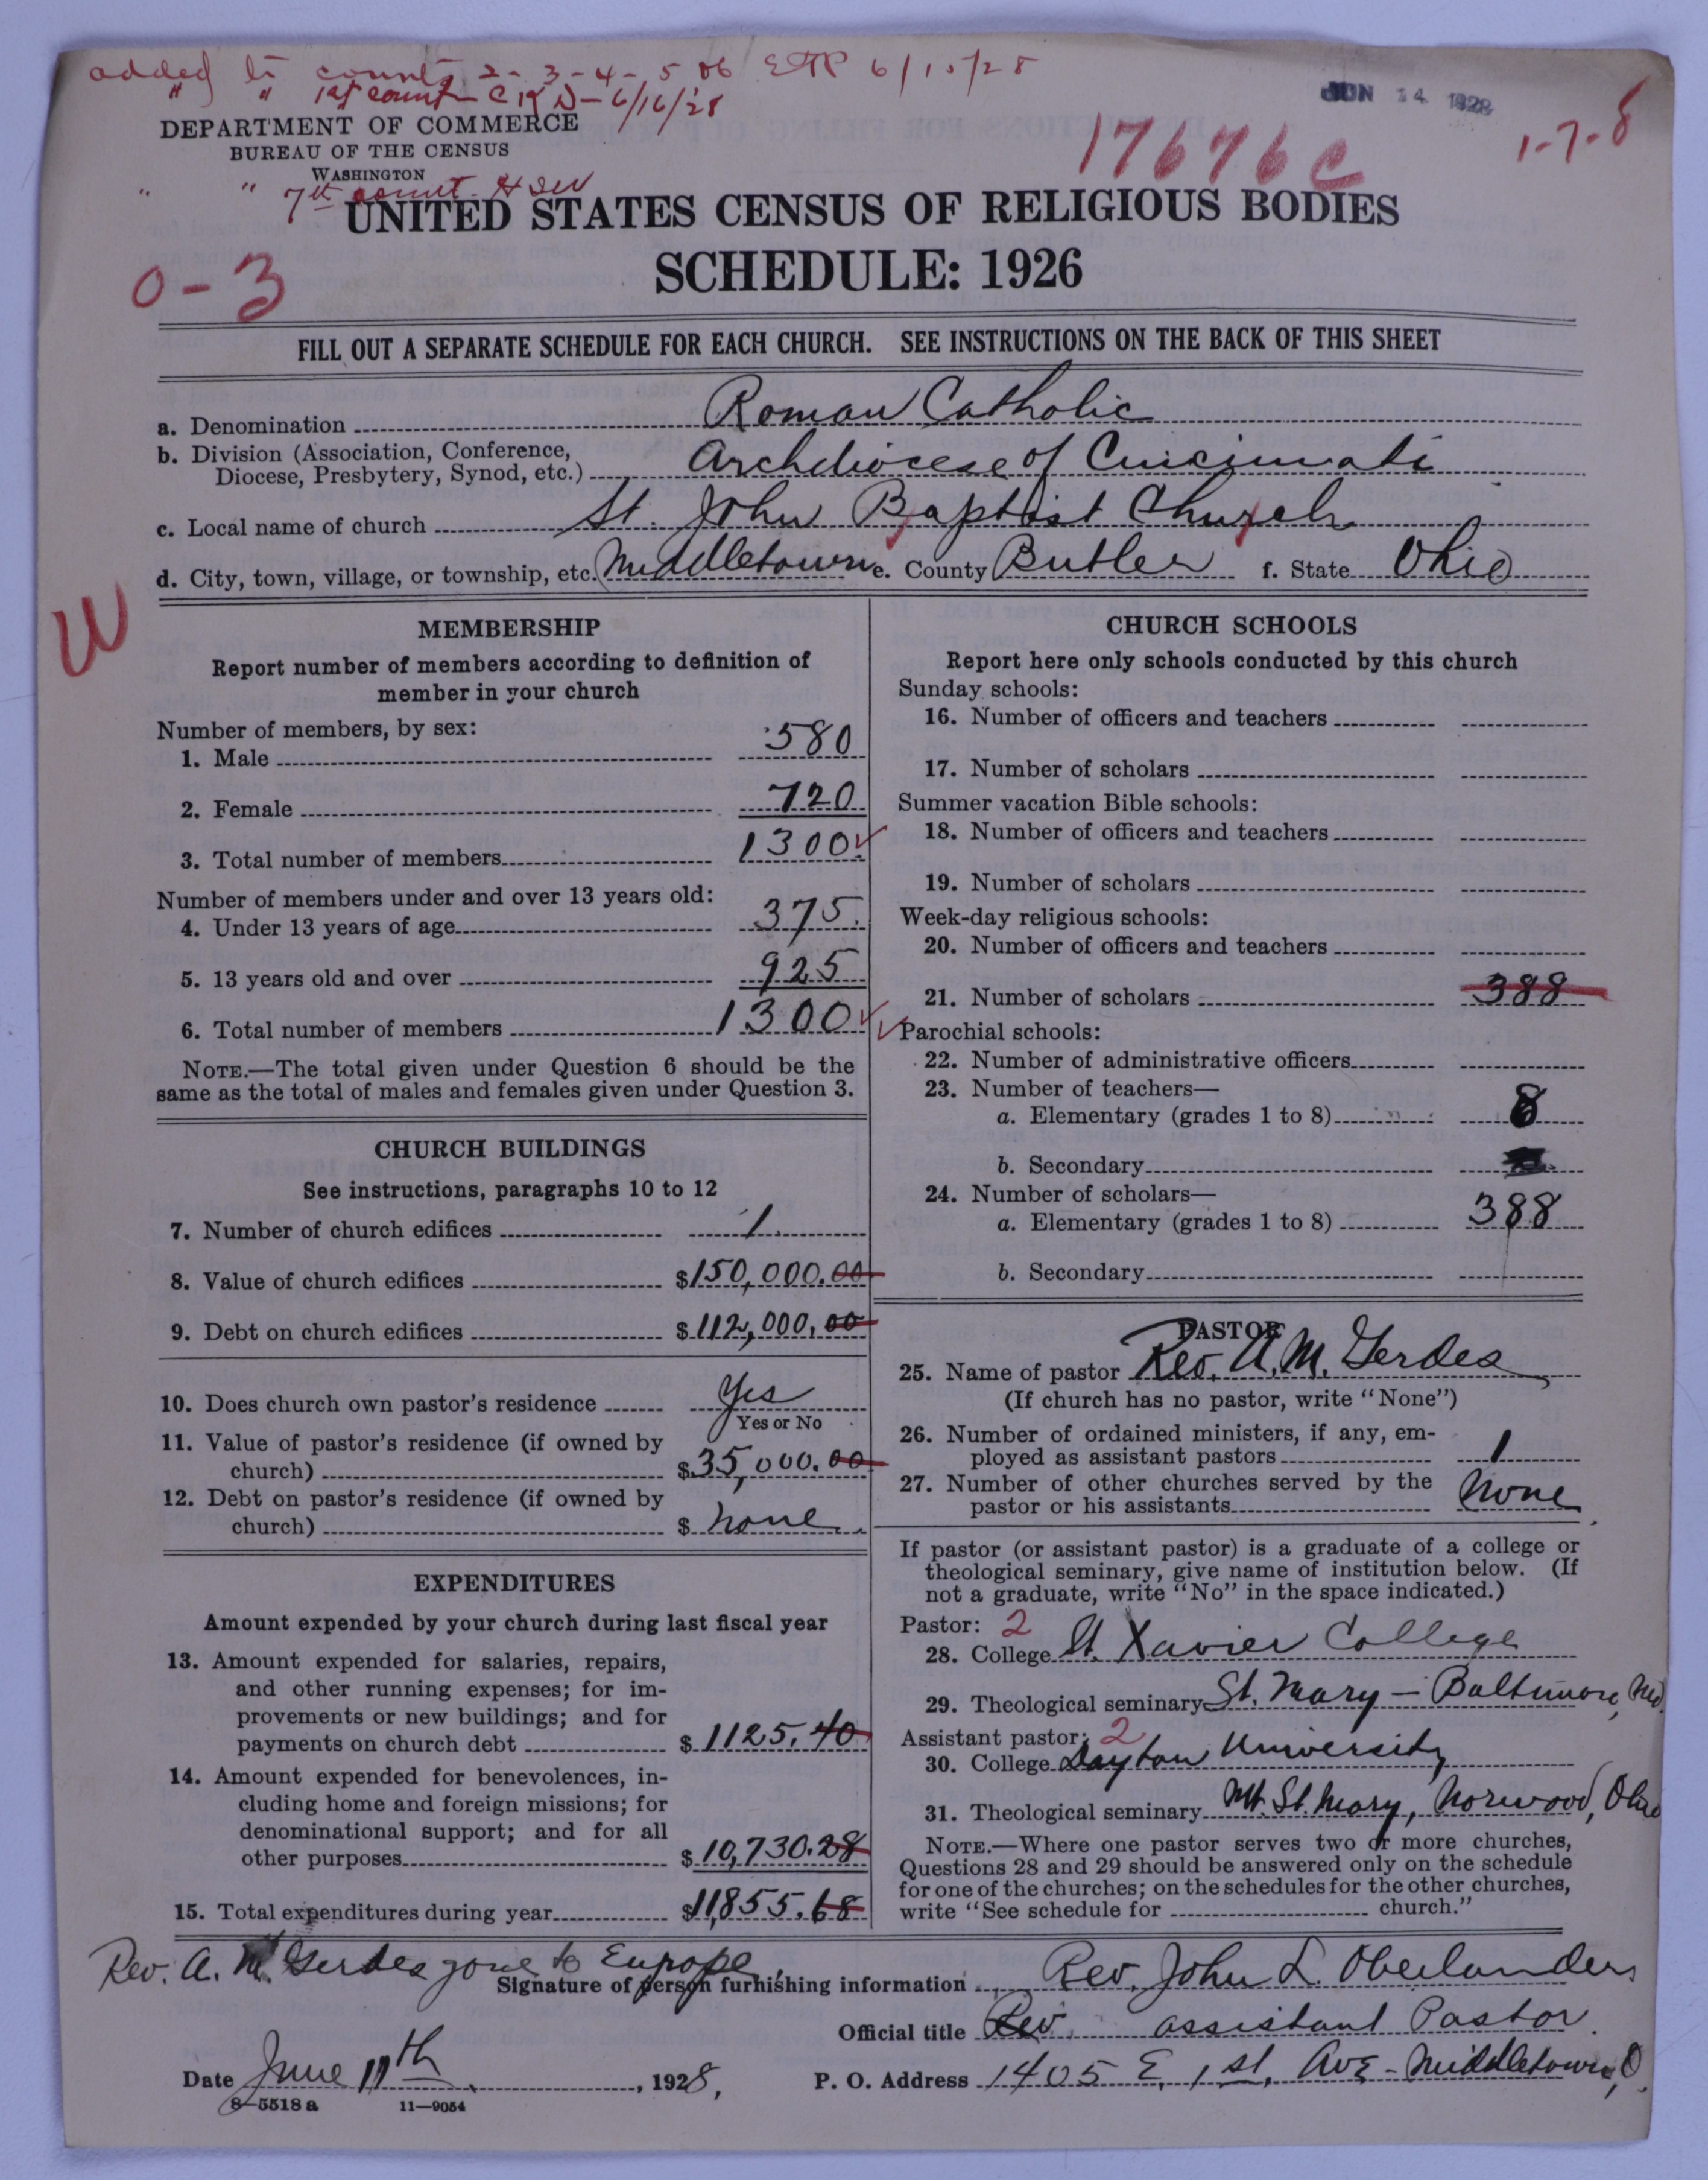 added to count 2-3-4-5 06 ETP 6/15/28
" " 1st count CKD-6/16/28
JUN 14 1928
DEPARTMENT OF COMMERCE
BUREAU OF THE CENSUS
WASHINGTON
17676c
1-7-8
" " 7th count HSW
UNITED STATES CENSUS OF RELIGIOUS BODIES
SCHEDULE: 1926
0-3
FILL OUT A SEPARATE SCHEDULE FOR EACH CHURCH. SEE INSTRUCTIONS ON THE BACK OF THIS SHEET
a. Denomination Roman Catholic
b. Division (Association, Conference,
Diocese, Presbytery, Synod, etc.) Archdiocese of Cincinnati
c. Local name of church St. John Baptist Church
d. City, town, village, or township, etc. Middletown e. County Butler f. State Ohio
W
MEMBERSHIP
Report number of members according to definition of
member in your church
Number of members, by sex:
1. Male 580
2. Female 720
3. Total number of members 1300
Number of members under and over 13 years old:
4. Under 13 years of age 375
5. 13 years old and over 925
6. Total number of members 1300
NOTE.—The total given under Question 6 should be the
same as the total of males and females given under Question 3.
CHURCH BUILDINGS
See instructions, paragraphs 10 to 12
7. Number of church edifices 1
8. Value of church edifices $150,000.00
9. Debt on church edifices $112,000.00
10. Does church own pastor's residence Yes
Yes or No
11. Value of pastor's residence (if owned by
church) $35,000.00
12. Debt on pastor's residence (if owned by
church) $ none
EXPENDITURES
Amount expended by your church during last fiscal year
13. Amount expended for salaries, repairs,
and other running expenses; for im-
provements or new buildings; and for
payments on church debt $1125.40
14. Amount expended for benevolences, in-
cluding home and foreign missions; for
denominational support; and for all
other purposes $10,730.28
15. Total expenditures during year $11,855.68
CHURCH SCHOOLS
Report here only schools conducted by this church
Sunday schools:
16. Number of officers and teachers
17. Number of scholars
Summer vacation Bible schools:
18. Number of officers and teachers
19. Number of scholars
Week-day religious schools:
20. Number of officers and teachers
21. Number of scholars 388
Parochial schools:
22. Number of administrative officers
23. Number of teachers—
a. Elementary (grades 1 to 8) 8
b. Secondary
24. Number of scholars—
a. Elementary (grades 1 to 8) 388
b. Secondary
PASTOR
25. Name of pastor Rev. A. M. Gerdes
(If church has no pastor, write "None")
26. Number of ordained ministers, if any, em-
ployed as assistant pastors 1
27. Number of other churches served by the
pastor or his assistants None
If pastor (or assistant pastor) is a graduate of a college or
theological seminary, give name of institution below. (If
not a graduate, write "No" in the space indicated.)
Pastor: 2
28. College St. Xavier College
29. Theological seminary St. Mary - Baltimore, Md.
Assistant pastor: 2
30. College Dayton University
31. Theological seminary Mt. St. Mary, Norwood, Ohio
NOTE.—Where one pastor serves two or more churches,
Questions 28 and 29 should be answered only on the schedule
for one of the churches; on the schedules for the other churches,
write "See schedule for church."
Rev. A. M. Gerdes gone to Europe.
Signature of person furnishing information Rev. John L. Oberlanders
Official title Rev. assistant Pastor
Date June 11th, 1928, P. O. Address 1405 E. 1st. Ave - Middletown, O.
8-5518 a 11-9054